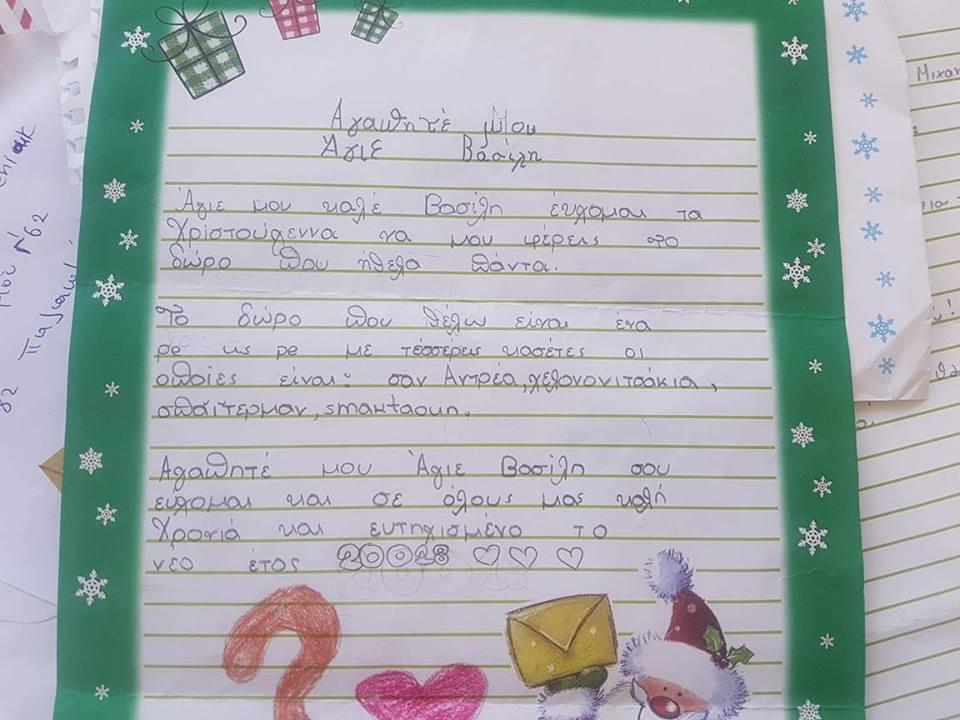 Αγαπητέ μου
Άγιε Βασίλη
Άγιε μου καλέ Βασίλη εύχομαι τα
Χριστούγεννα να μου φέρεις το
δώρο που ήθελα πάντα.
Το δώρο που θέλω είναι ένα
ρε κις ρε με τέσσερεις κασέτες οι
οποίες είναι: σαν Αντρέα, χελονονιτσάκια,
σπάιτερμαν, smακταουn.
Αγαπητέ μου Άγιε Βασίλη σου
ευχομαι και σε όλους μας καλή
Χρονιά και ευτηχισμένο το
νεο έτος 20018 ♡♡♡
Γ΄62